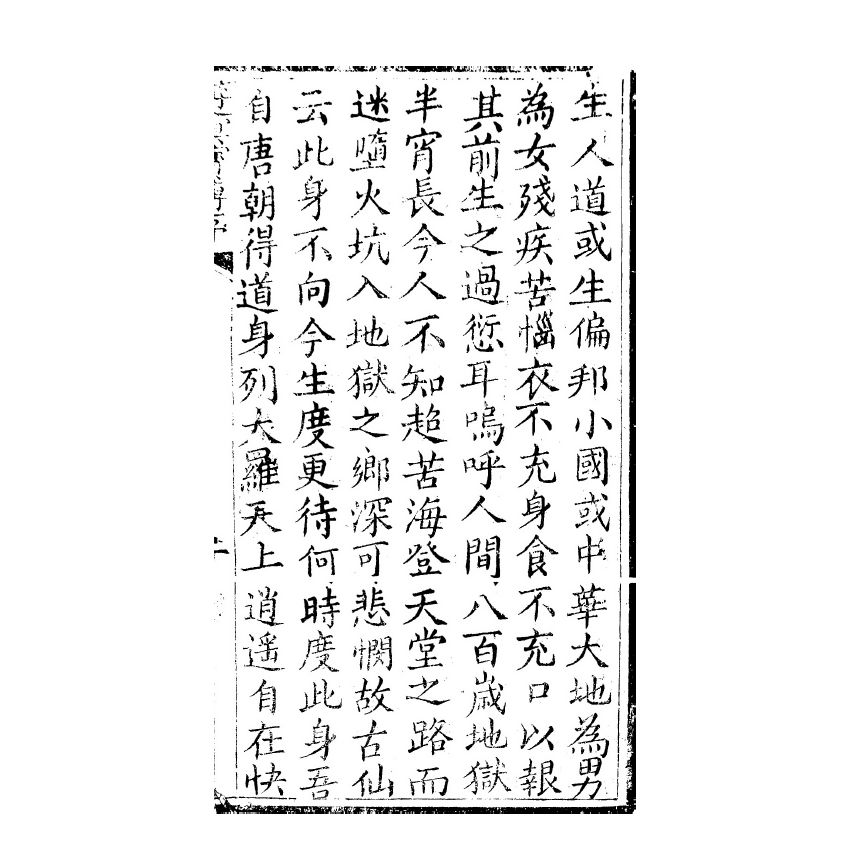 生人道或生偏邦小國或中華大地為男
為女殘疾苦惱衣不充身食不充口以報
其前生之過愆耳嗚呼人間八百歲地獄
半宵長今人不知超苦海登天堂之路而
迷墮火坑入地獄之鄉深可悲憫故古仙
云此身不向今生度更待何時度此身吾
自唐朝得道身列大羅天上逍遥自在快